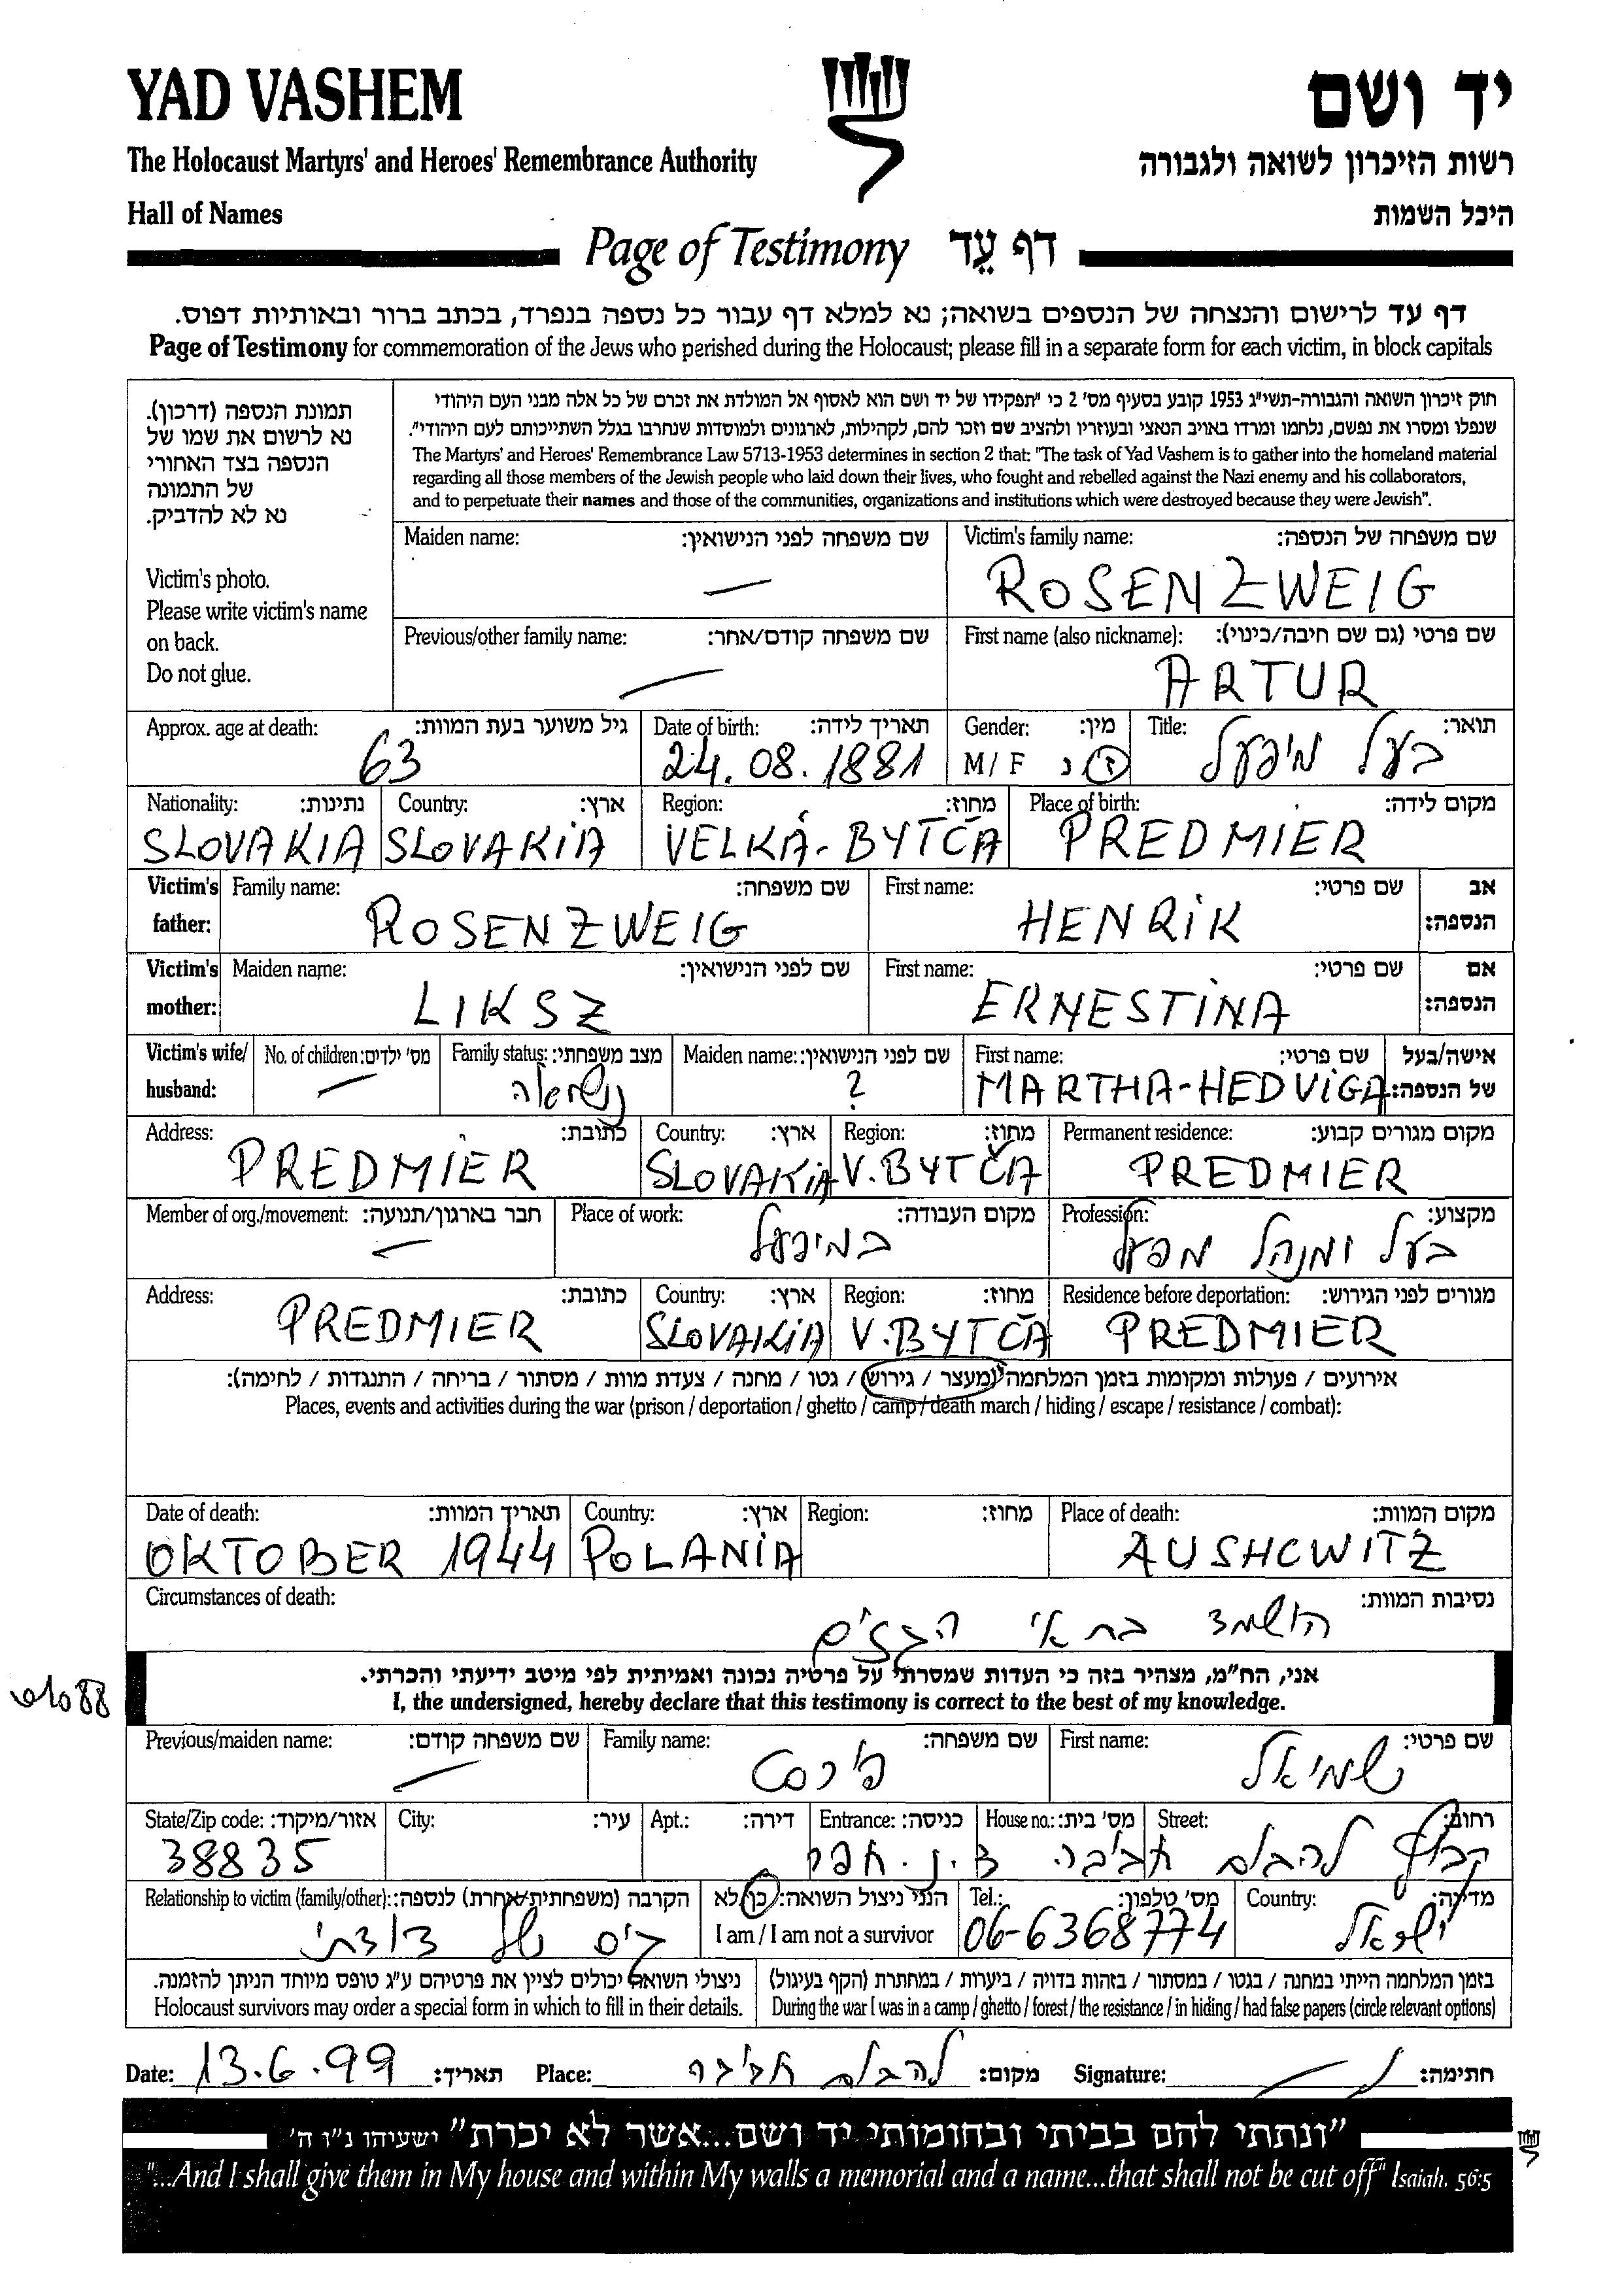 YAD VASHEM
יד ושם
The Holocaust Martyrs' and Heroes' Remembrance Authority
רשות הזיכרון לשואה ולגבורה
Hall of Names
היכל השמות
Page of Testimony דף עֵד
דף עד לרישום והנצחה של הנספים בשואה; נא למלא דף עבור כל נספה בנפרד, בכתב ברור ובאותיות דפוס.
Page of Testimony for commemoration of the Jews who perished during the Holocaust; please fill in a separate form for each victim, in block capitals
תמונת הנספה (דרכון).
נא לרשום את שמו של
הנספה בצד האחורי
של התמונה
נא לא להדביק.
Victim's photo.
Please write victim's name
on back.
Do not glue.
חוק זיכרון השואה והגבורה-תשי"ג 1953 קובע בסעיף מס' 2 כי "תפקידו של יד ושם הוא לאסוף אל המולדת את זכרם של כל אלה מבני העם היהודי
שנפלו ומסרו את נפשם, נלחמו ומרדו באויב הנאצי ובעוזריו ולהציב שם וזכר להם, לקהילות, לארגונים ולמוסדות שנחרבו בגלל השתייכותם לעם היהודי".
The Martyrs' and Heroes' Remembrance Law 5713-1953 determines in section 2 that: "The task of Yad Vashem is to gather into the homeland material
regarding all those members of the Jewish people who laid down their lives, who fought and rebelled against the Nazi enemy and his collaborators,
and to perpetuate their names and those of the communities, organizations and institutions which were destroyed because they were Jewish".
Maiden name: שם משפחה לפני הנישואין: Victim's family name: שם משפחה של הנספה:
— ROSENZWEIG
Previous/other family name: שם משפחה קודם/אחר: First name (also nickname): שם פרטי (גם שם חיבה/כינוי):
— ARTUR
Approx. age at death: גיל משוער בעת המוות: Date of birth: תאריך לידה: Gender: מין: Title: תואר:
63 24.08.1881 M / F ז נ בעל מיפעל
Nationality: נתינות: Country: ארץ: Region: מחוז: Place of birth: מקום לידה:
SLOVAKIA SLOVAKIA VELKÁ-BYTČA PREDMIER
Victim's father: Family name: שם משפחה: First name: שם פרטי: אב הנספה:
ROSENZWEIG HENRIK
Victim's mother: Maiden name: שם לפני הנישואין: First name: שם פרטי: אם הנספה:
LIKSZ ERNESTINA
Victim's wife/ husband: No. of children: מס' ילדים: Family status: מצב משפחתי: Maiden name: שם לפני הנישואין: First name: שם פרטי: אישה/בעל של הנספה:
— נשואה ? MARTHA-HEDVIGA
Address: כתובת: Country: ארץ: Region: מחוז: Permanent residence: מקום מגורים קבוע:
PREDMIER SLOVAKIA V.BYTČA PREDMIER
Member of org./movement: חבר בארגון/תנועה: Place of work: מקום העבודה: Profession: מקצוע:
— במיפעל בעל ומנהל מפעל
Address: כתובת: Country: ארץ: Region: מחוז: Residence before deportation: מגורים לפני הגירוש:
PREDMIER SLOVAKIA V.BYTČA PREDMIER
אירועים / פעולות ומקומות בזמן המלחמה (מעצר / גירוש / גטו / מחנה / צעדת מוות / מסתור / בריחה / התנגדות / לחימה):
Places, events and activities during the war (prison / deportation / ghetto / camp / death march / hiding / escape / resistance / combat):
Date of death: תאריך המוות: Country: ארץ: Region: מחוז: Place of death: מקום המוות:
OKTOBER 1944 POLANIA AUSHCWITZ
Circumstances of death: נסיבות המוות:
הושמד בתאי הגזים
אני, הח"מ, מצהיר בזה כי העדות שמסרתי על פרטיה נכונה ואמיתית לפי מיטב ידיעתי והכרתי.
I, the undersigned, hereby declare that this testimony is correct to the best of my knowledge.
Previous/maiden name: שם משפחה קודם: Family name: שם משפחה: First name: שם פרטי:
— שמואל
State/Zip code: אזור/מיקוד: City: עיר: Apt.: דירה: Entrance: כניסה: House no.: מס' בית: Street: רחוב:
38835 קבוץ להבות חביבה ד.נ. חפר
Relationship to victim (family/other): הקרבה (משפחתית/אחרת) לנספה: הנני ניצול השואה: כן/לא Tel.: מס' טלפון: Country: מדינה:
גיס של דודתי I am / I am not a survivor 06-6368774 ישראל
ניצולי השואה יכולים לציין את פרטיהם ע"ג טופס מיוחד הניתן להזמנה.
Holocaust survivors may order a special form in which to fill in their details.
בזמן המלחמה הייתי במחנה / בגטו / במסתור / בזהות בדויה / ביערות / במחתרת (הקף בעיגול)
During the war I was in a camp / ghetto / forest / the resistance / in hiding / had false papers (circle relevant options)
Date: 13.6.99 תאריך: Place: להבות חביבה מקום: Signature: חתימה:
"ונתתי להם בביתי ובחומותי יד ושם...אשר לא יכרת" ישעיהו נ"ו ה'
"...And I shall give them in My house and within My walls a memorial and a name...that shall not be cut off" Isaiah, 56:5